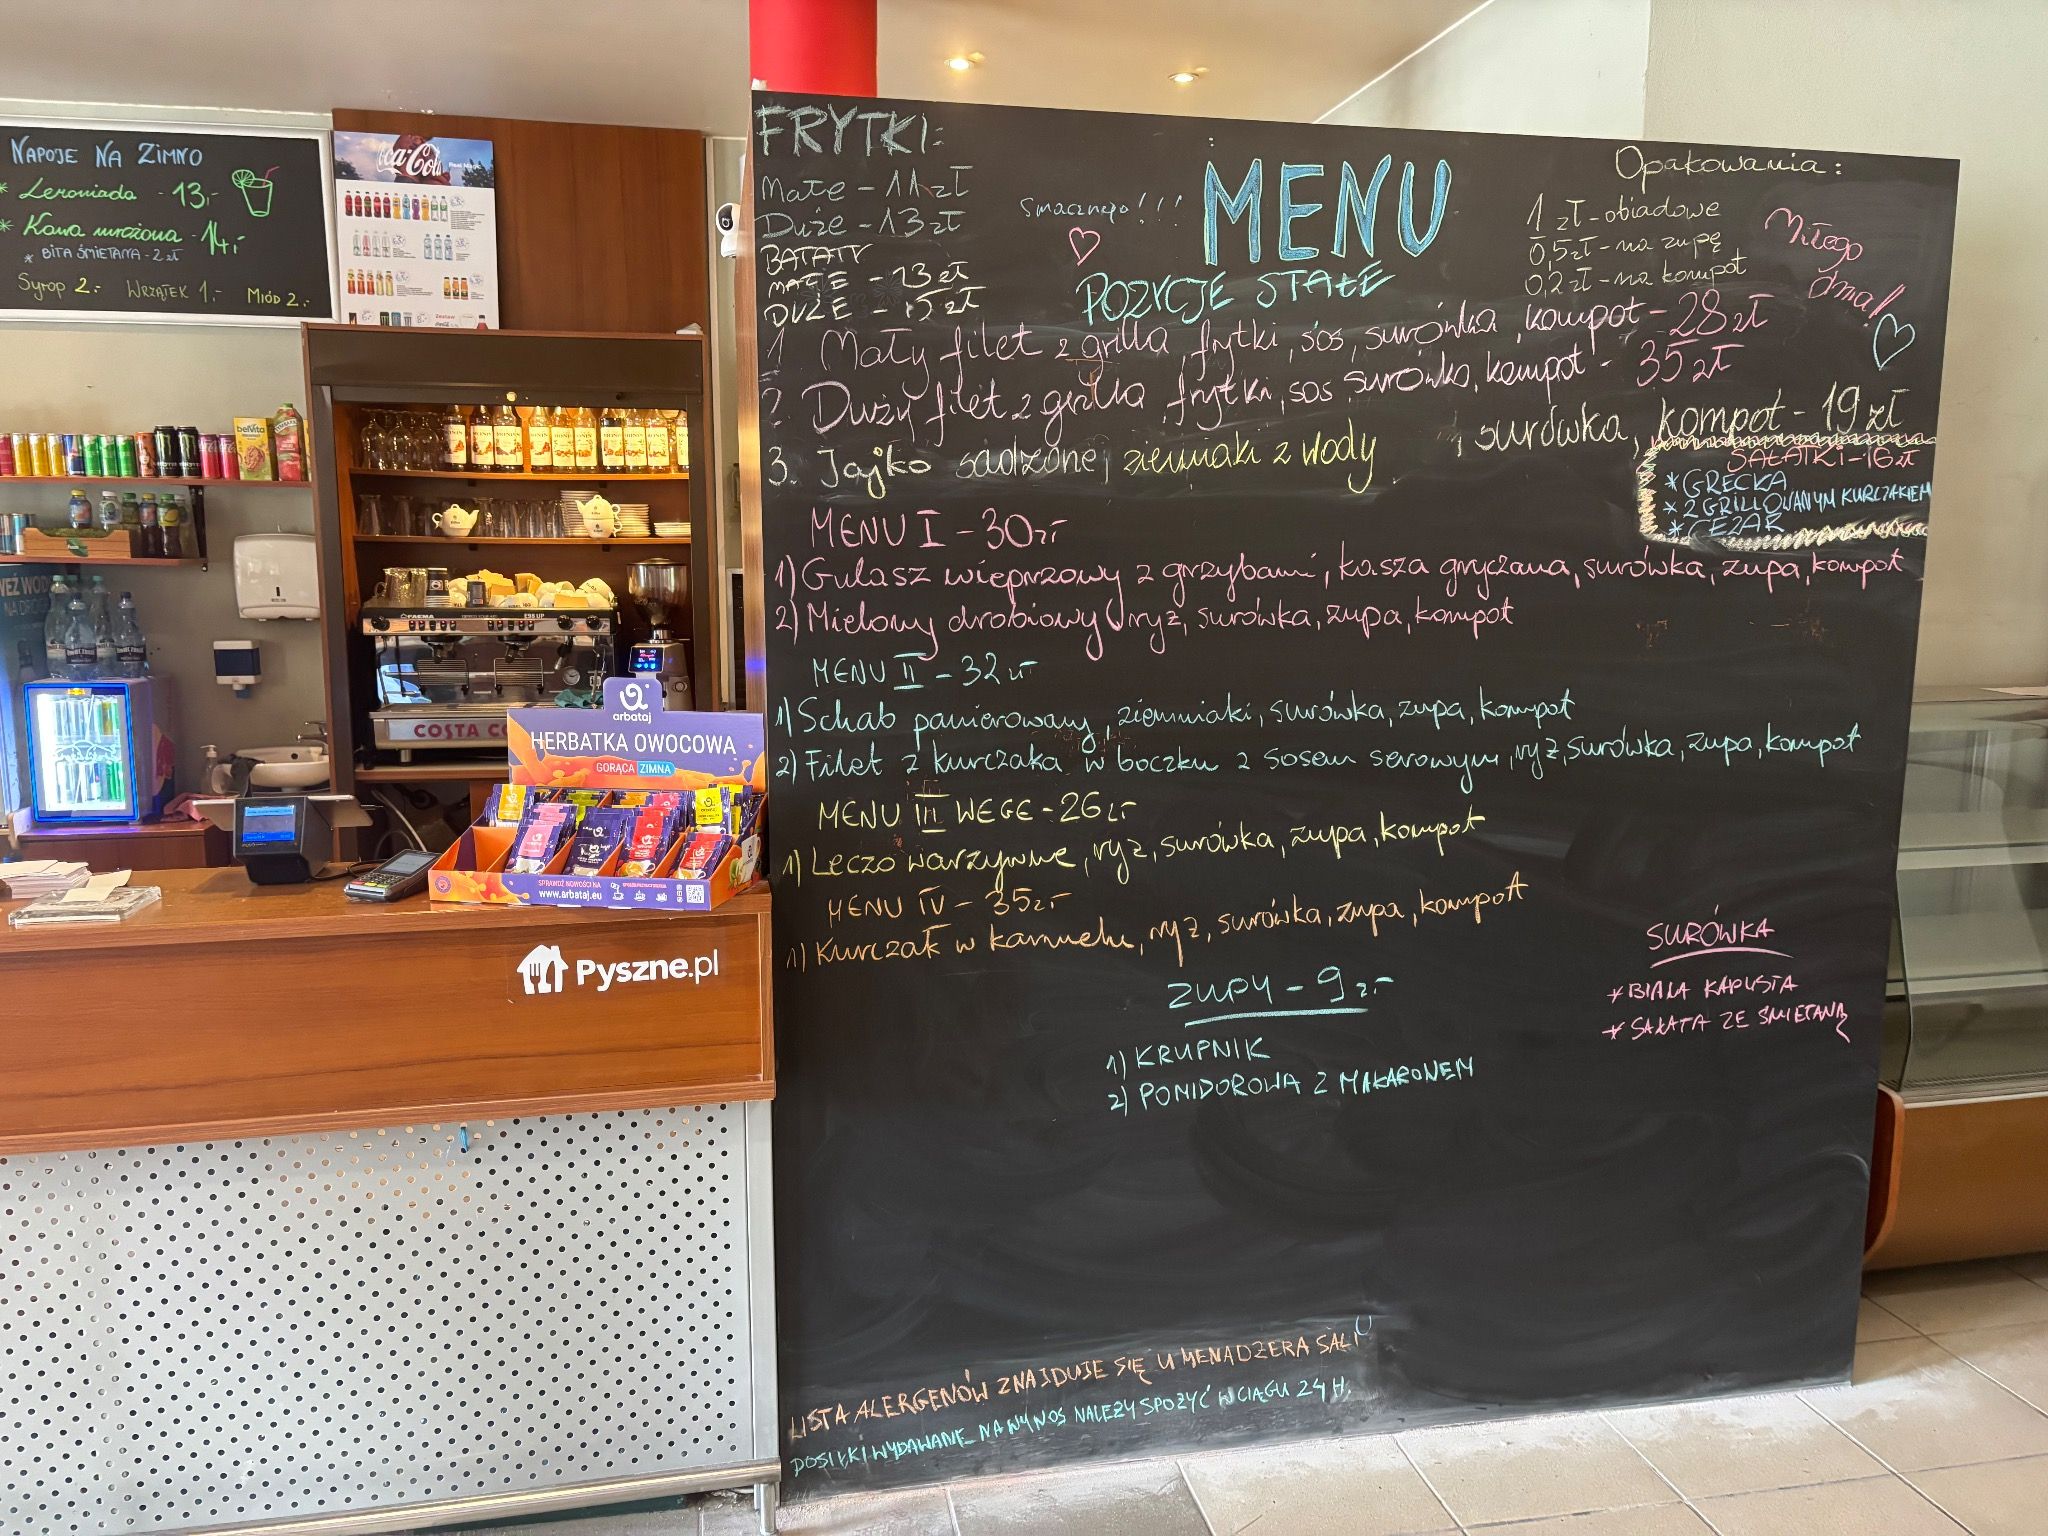 NAPOJE NA ZIMNO
* Lemoniada - 13,-
* Kawa mrożona - 14,-
* BITA ŚMIETANA - 2 zł
Syrop 2.- WRZĄTEK 1,- MIÓD 2.-
Coca-Cola
Real Magic
Zestaw
belVita
MONIN
FAEMA
E98 UP
COSTA
arbataj
HERBATKA OWOCOWA
GORĄCA ZIMNA
SPRAWDŹ NOWOŚCI NA
www.arbataj.eu
Pyszne.pl
FRYTKI:
Małe - 11 zł
Duże - 13 zł
BATATY
MAŁE - 13 zł
DUŻE - 15 zł
Smacznego!!!
MENU
POZYCJE STAŁE
Opakowania:
1 zł - obiadowe
0,5zł - na zupę
0,2 zł - na kompot
Miłego
dnia!
1 Mały filet z grilla, frytki, sos, surówka, kompot - 28 zł
2. Duży filet z grilla, frytki, sos surówka, kompot - 35 zł
3. Jajko sadzone, ziemniaki z wody , surówka, kompot - 19 zł
SAŁATKI - 16 zł
* GRECKA
* Z GRILLOWANYM KURCZAKIEM
* CEZAR
MENU I - 30 zł
1) Gulasz wieprzowy z grzybami, kasza gryczana, surówka, zupa, kompot
2) Mielony drobiowy, ryż, surówka, zupa, kompot
MENU II - 32 zł
1) Schab panierowany, ziemniaki, surówka, zupa, kompot
2) Filet z kurczaka w boczku z sosem serowym, ryż, surówka, zupa, kompot
MENU III WEGE - 26 zł
1) Leczo warzywne, ryż, surówka, zupa, kompot
MENU IV - 35 zł
1) Kurczak w karmelu, ryż, surówka, zupa, kompot
ZUPY - 9 zł
1) KRUPNIK
2) POMIDOROWA Z MAKARONEM
SURÓWKA
* BIAŁA KAPUSTA
* SAŁATA ZE ŚMIETANĄ
LISTA ALERGENÓW ZNAJDUJE SIĘ U MENADŻERA SALI
POSIŁKI WYDAWANE NA WYNOS NALEŻY SPOŻYĆ W CIĄGU 24 H.